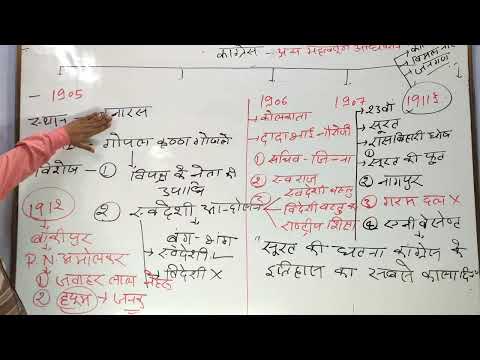 कांग्रेस - अन्य महत्वपूर्ण अधिवेशन
- 1905
स्थान - बनारस
गोपाल कृष्ण गोखले
विशेष - ① विपक्ष के नेता की
उपाधि
② स्वदेशी आन्दोलन
बंग-भंग
→ स्वदेशी ✓
→ विदेशी X
1912
→ बांकीपुर
① जवाहर लाल नेहरू
② ह्यूम → जनक
1906
→ कोलकाता
→ दादा भाई नौरोजी
① सचिव - जिन्ना
② स्वराज
स्वदेशी वस्तु
विदेशी वस्तु
राष्ट्रीय शिक्षा
1907
→ 23वां
→ सूरत
→ रासबिहारी घोष
① सूरत की फूट
② नागपुर
③ गरम दल X
④ एनी बेसेण्ट
1911 ई
जनगण
"सूरत की घटना कांग्रेस के
इतिहास का सबसे काला दिन"